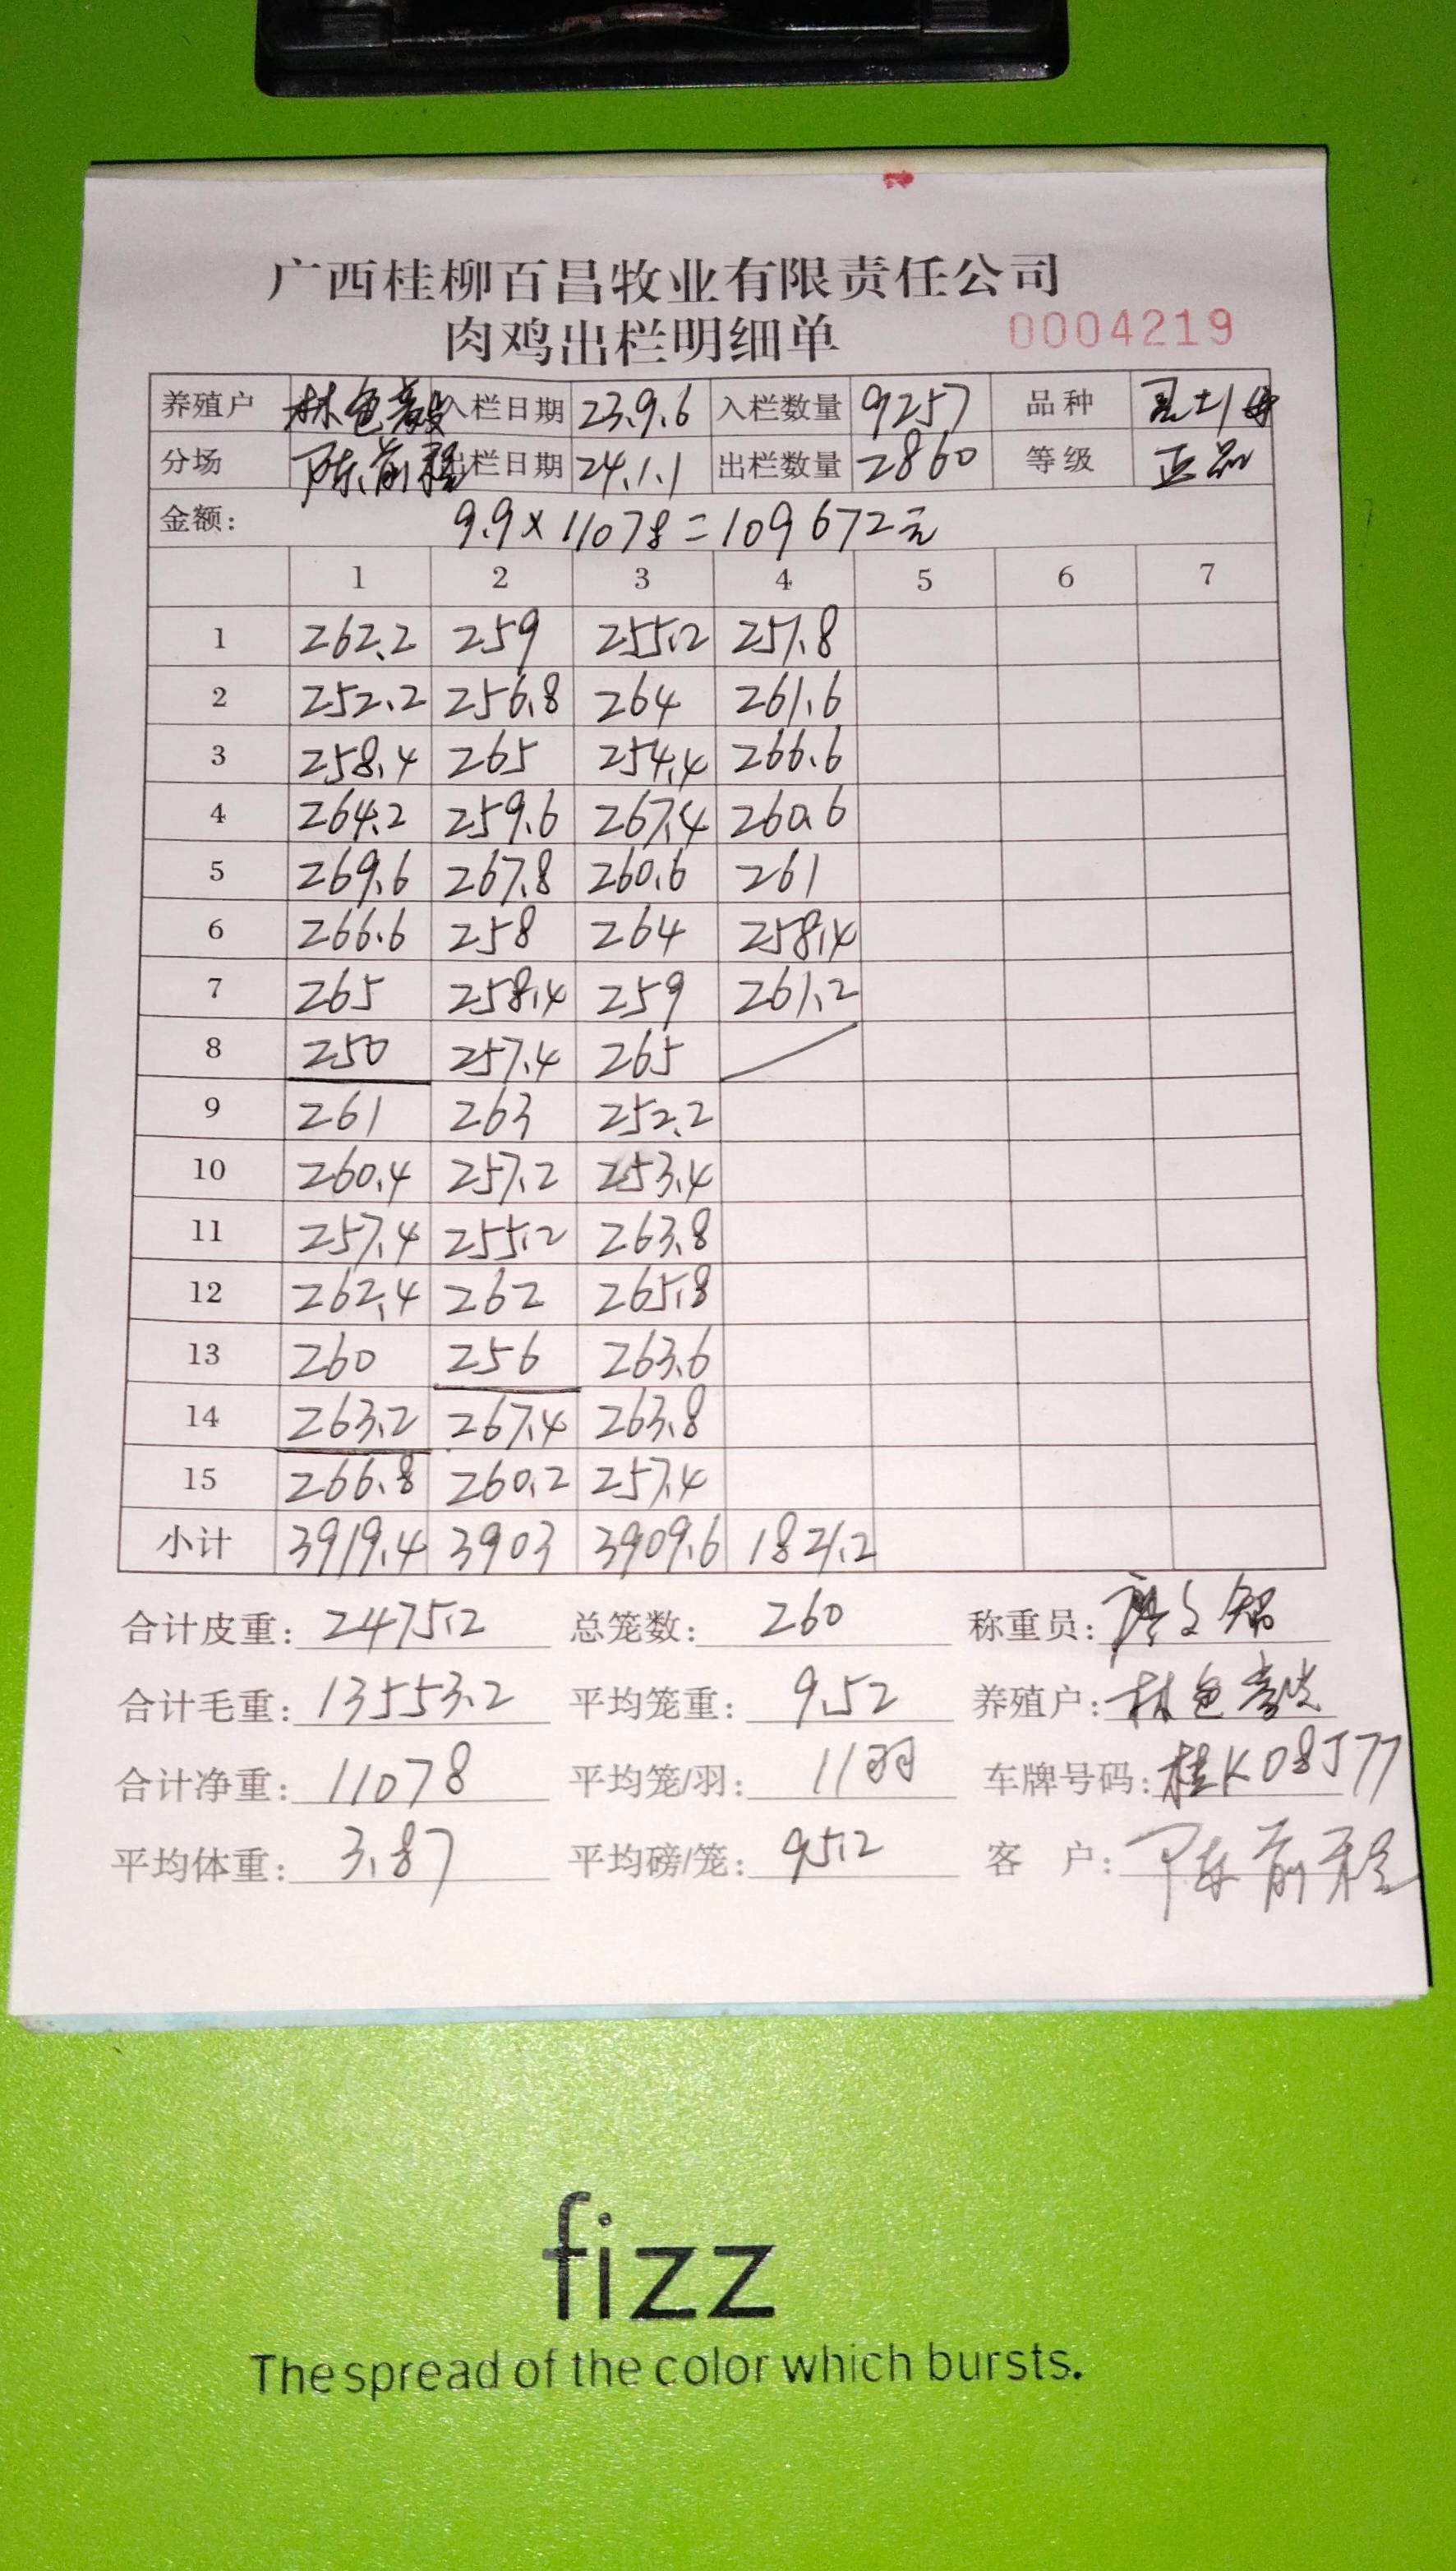 广西桂柳百昌牧业有限责任公司
肉鸡出栏明细单 0004219
养殖户 林 入栏日期 23.9.6 入栏数量 9257 品种
分场 陈前程 出栏日期 24.1.1 出栏数量 2860 等级 正品
金额: 9.9×11078=109672元
1 2 3 4 5 6 7
1 262.2 259 255.2 257.8
2 252.2 256.8 264 261.6
3 258.4 265 254.4 266.6
4 264.2 259.6 267.4 260.6
5 269.6 267.8 260.6 261
6 266.6 258 264 258.4
7 265 258.4 259 261.2
8 250 257.4 265
9 261 263 252.2
10 260.4 257.2 253.4
11 257.4 255.2 263.8
12 262.4 262 265.8
13 260 256 263.6
14 263.2 267.4 263.8
15 266.8 260.2 257.4
小计 3919.4 3903 3909.6 1821.2
合计皮重: 2475.2 总笼数: 260 称重员:
合计毛重: 13553.2 平均笼重: 9.52 养殖户: 林
合计净重: 11078 平均笼/羽: 11羽 车牌号码: 桂K08J77
平均体重: 3.87 平均磅/笼: 95.2 客 户: 陈前程
fizz
The spread of the color which bursts.